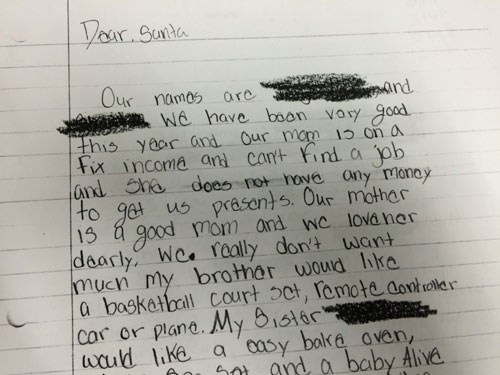 Dear, Santa
Our names are and
We have been very good
this year and our mom is on a
fix income and can't find a job
and she does not have any money
to get us presents. Our mother
is a good mom and we love her
dearly, We. really don't want
much my brother would like
a basketball court set, remote controller
car or plane. My Sister
would like a easy bake oven,
set and a baby Alive